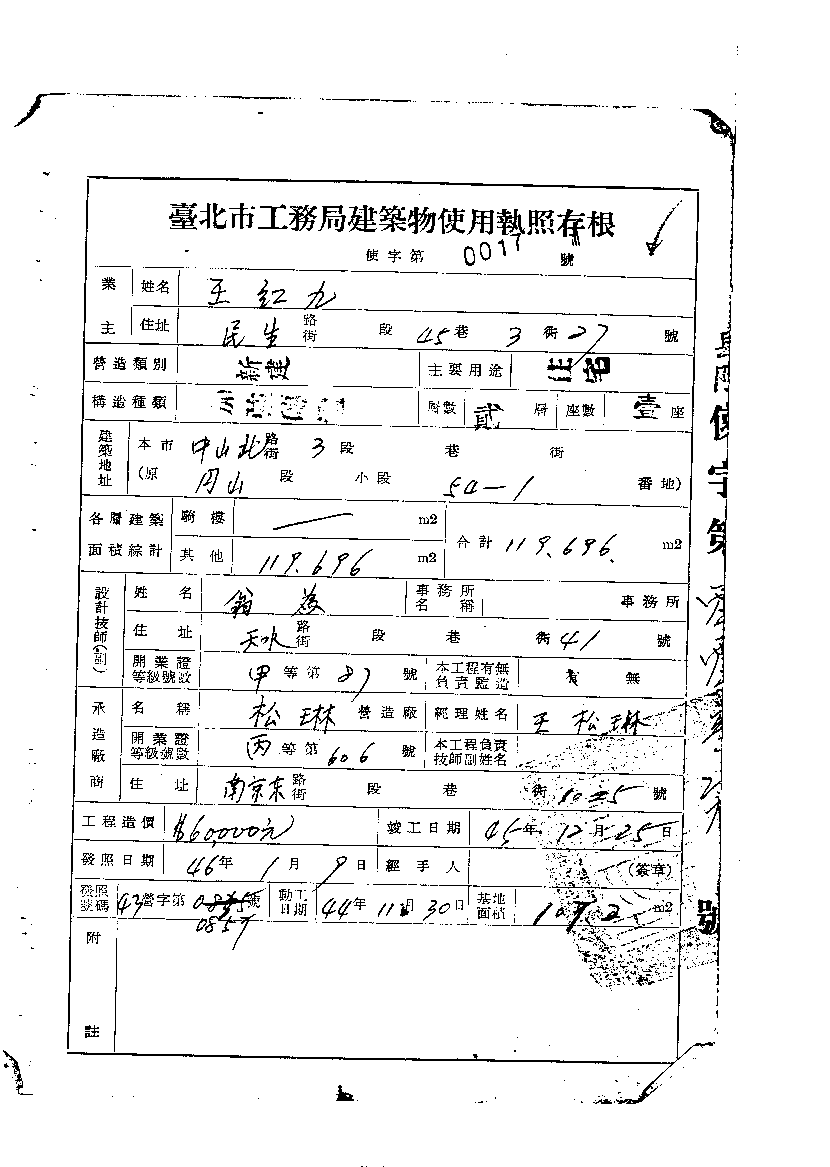 臺北市工務局建築物使用執照存根
使字第 0017 號
業主 姓名 王紅九
住址 民生 路街 段 45巷 3 街 27 號
營造類別 新建 主要用途 住宅
構造種類 層數 貳 層 座數 壹 座
建築地址 本市 中山北 路街 3 段 巷 街
(原 円山 段 小段 54-1 番地)
各層建築面積綜計 騎樓 — m2 合計 119.696 m2
其他 119.696 m2
設計技師(副) 姓名 翁 事務所名稱 事務所
住址 天水 路街 段 巷 街 41 號
開業證等級號數 甲 等第 87 號 本工程有無負責監造 有 無
承造廠商 名稱 松琳 營造廠 經理姓名 王松琳
開業證等級號數 丙 等第 606 號 本工程負責技師副姓名
住址 南京东 路街 段 巷 街 號
工程造價 $60,000元 竣工日期 45年 12月 25日
發照日期 46年 1月 9日 經手人 (簽章)
發照號碼 43營字第 號 動工日期 44年 11月 30日 基地面積 109.2 m2
0859
附註
使字第
號